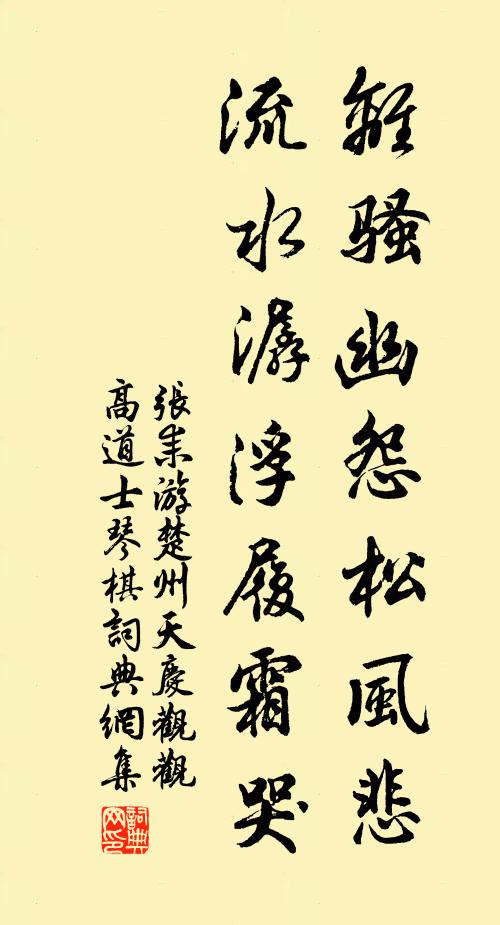 離騷幽怨松風悲
流水潺浮履霜哭
張耒游楚州天慶觀觀
高道士琴棋詞典網集
詞典
网印